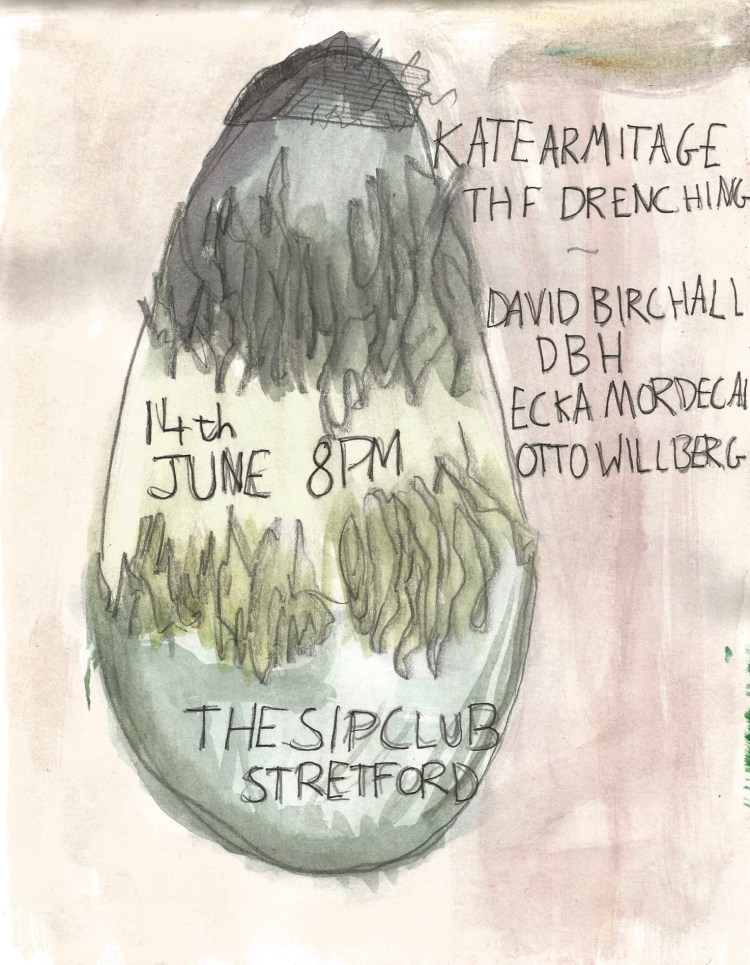 KATE ARMITAGE
THF DRENCHING
~
DAVID BIRCHALL
DBH
ECKA MORDECAI
OTTO WILLBERG
14th
JUNE 8PM
THE SIP CLUB
STRETFORD